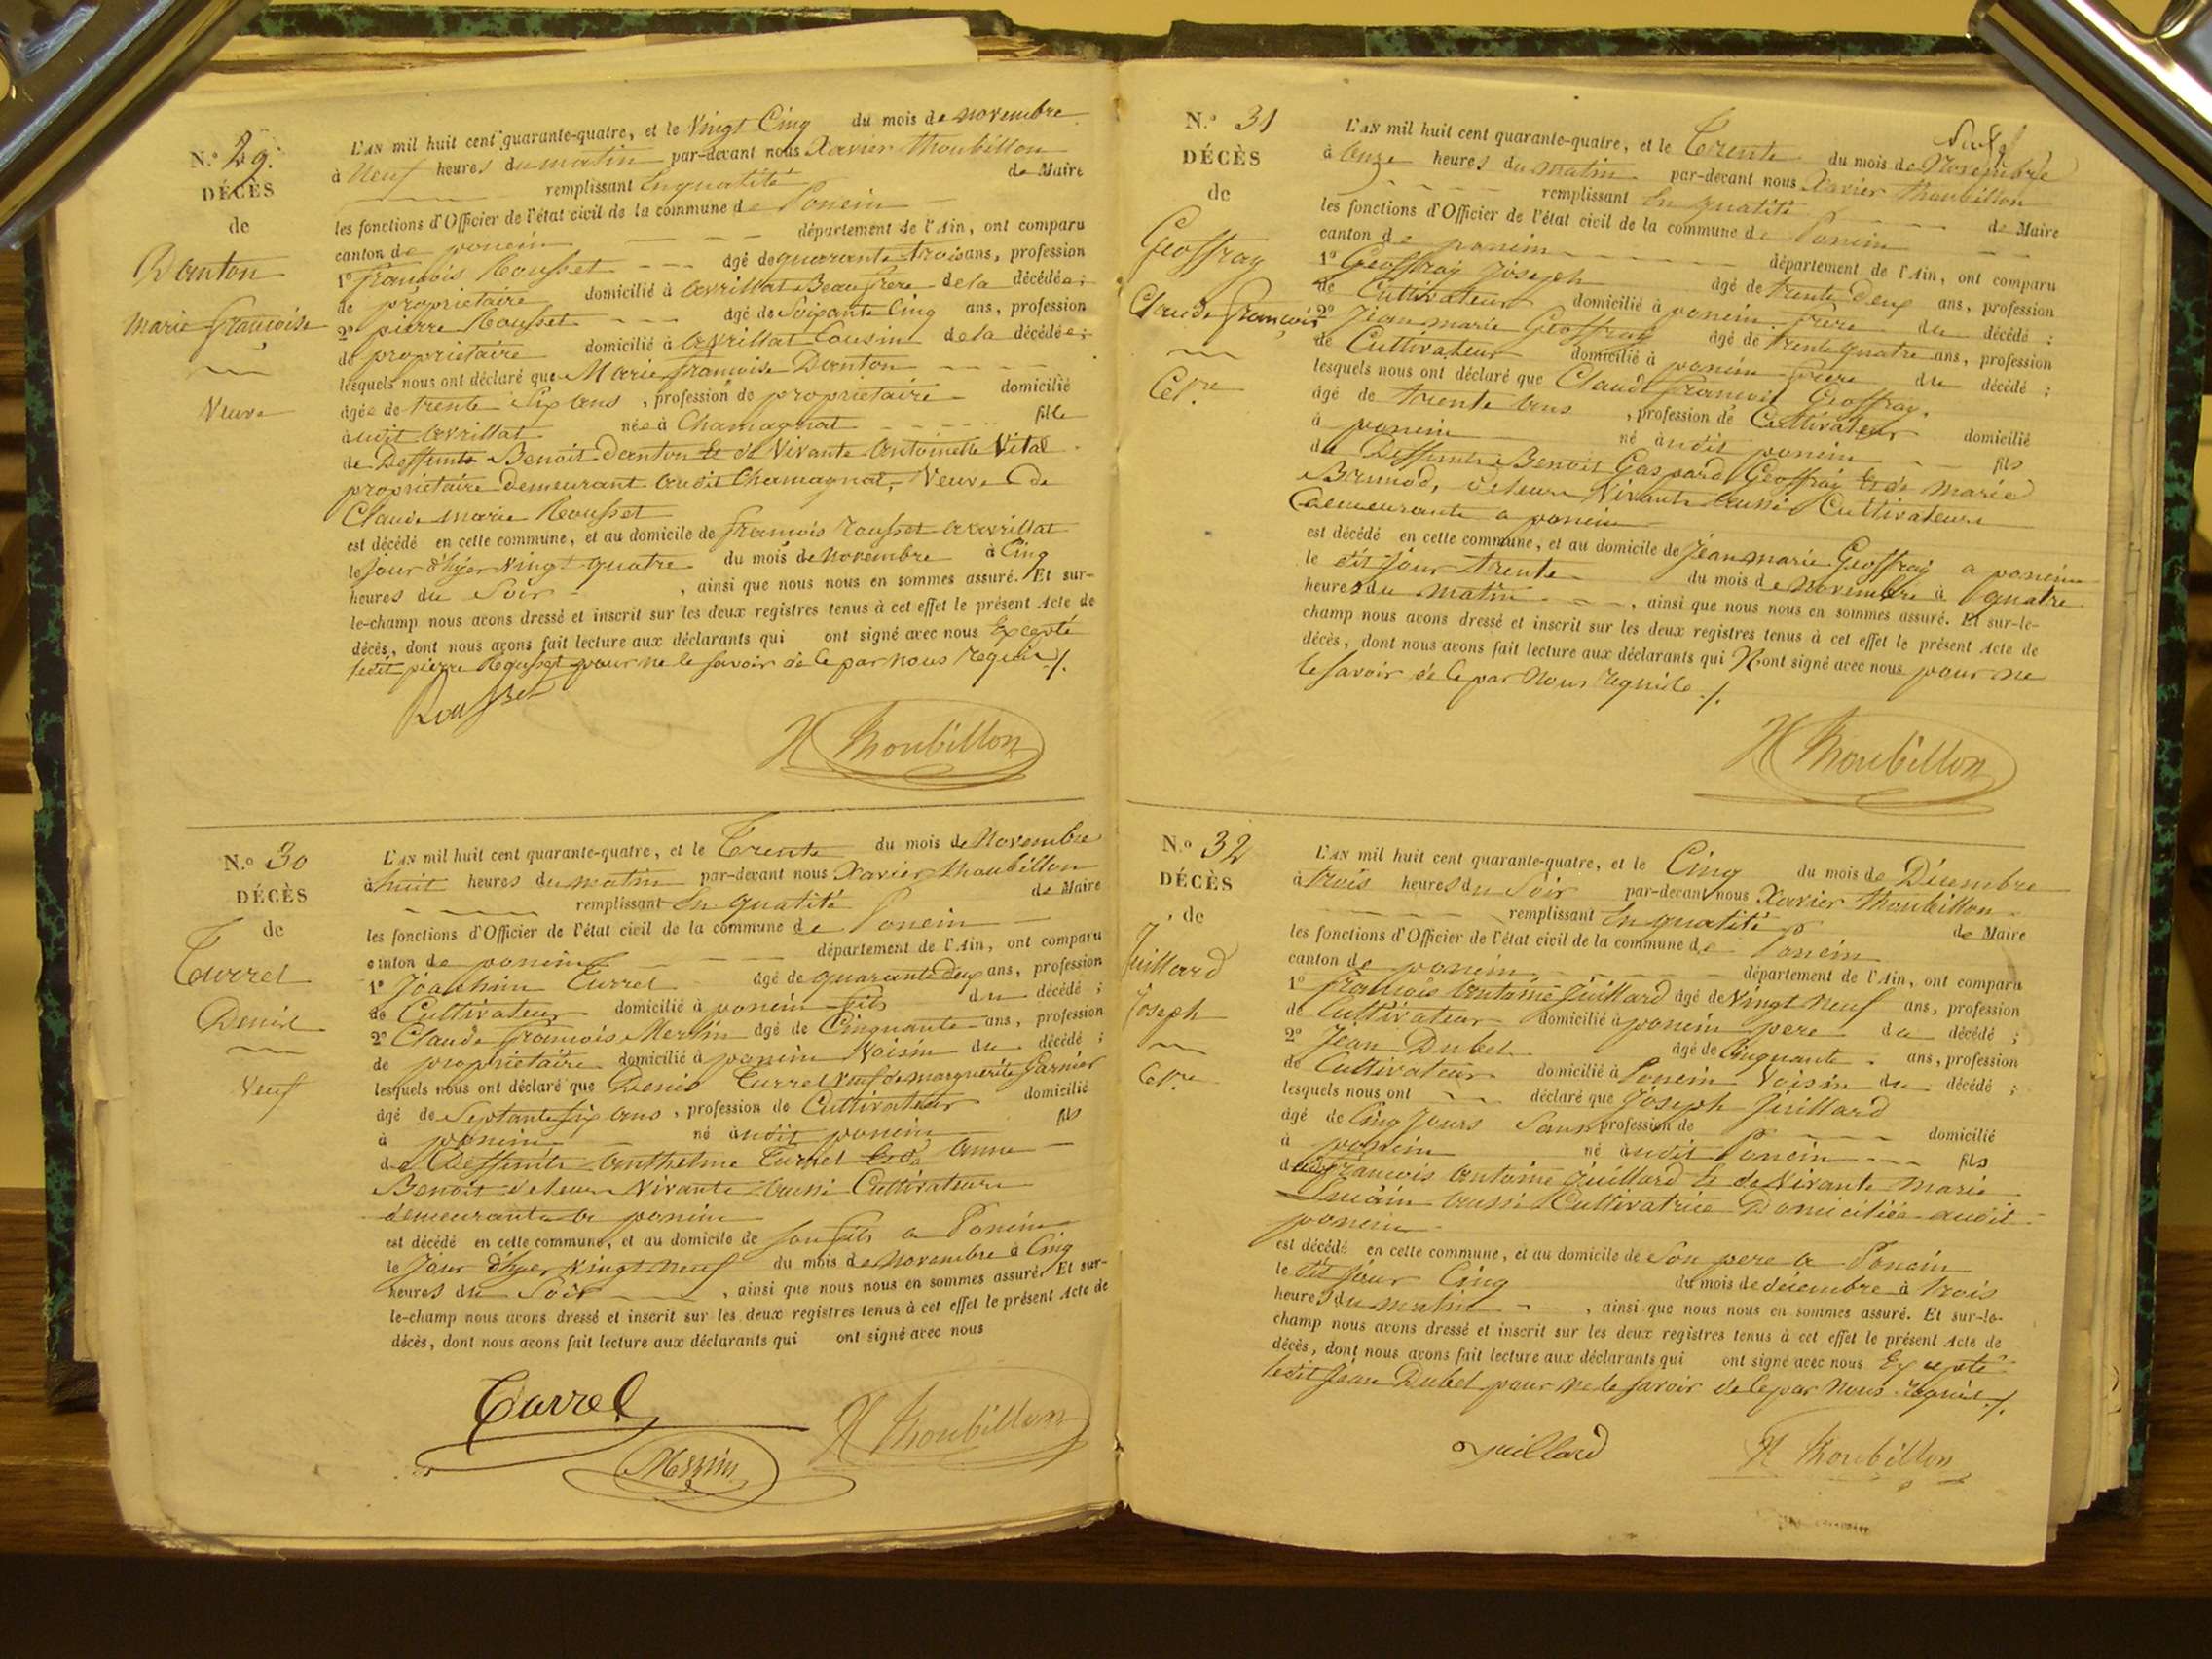 N.º 29.
DÉCÈS
de
Danton
Marie françoise
Veuve
L'AN mil huit cent quarante-quatre, et le Vingt Cinq du mois de novembre
à Neuf heures du matin par-devant nous Xavier Thoubillon
remplissant En qualité de Maire
les fonctions d'Officier de l'état civil de la commune de Poncin
canton de poncin département de l'Ain, ont comparu
1º françois Rousset âgé de quarante trois ans, profession
de propriétaire domicilié à avrillat Beau frère de la décédée ;
2º pierre Rousset âgé de Soixante Cinq ans, profession
de propriétaire domicilié à avrillat Cousin de la décédée ;
lesquels nous ont déclaré que Marie françoise Danton
âgée de trente Six ans, profession de propriétaire domicilié
audit avrillat née à Chamagnat fille
de Deffunts Benoit Danton Et de Vivante antoinette Vital
propriétaire demeurant audit Chamagnat, Veuve de
Claude marie Rousset
est décédé en cette commune, et au domicile de françois rousset a avrillat
le jour d'hyer vingt quatre du mois de novembre à Cinq
heures du Soir, ainsi que nous nous en sommes assuré. Et sur-
le-champ nous avons dressé et inscrit sur les deux registres tenus à cet effet le présent Acte de
décès, dont nous avons fait lecture aux déclarants qui ont signé avec nous Excepté
ledit pierre Rousset pour ne le savoir de ce par nous requis ./.
Rousset
X Thoubillon
N.º 30
DÉCÈS
de
Turrel
Denis
Veuf
L'AN mil huit cent quarante-quatre, et le Trente du mois de Novembre
à huit heures du matin par-devant nous Xavier Thoubillon
remplissant En qualité de Maire
les fonctions d'Officier de l'état civil de la commune de Poncin
canton de poncin département de l'Ain, ont comparu
1º Joachim Turrel âgé de quarante deux ans, profession
de Cultivateur domicilié à poncin fils du décédé ;
2º Claude françois Merlin âgé de Cinquante ans, profession
de propriétaire domicilié à poncin Voisin du décédé ;
lesquels nous ont déclaré que Denis Turrel Veuf de marguerite Garnier
âgé de Septante six ans, profession de Cultivateur domicilié
à poncin né audit poncin fils
de Deffunts anthelme Turrel Et de anne
Benoit de leur Vivants aussi Cultivateurs
demeurants a poncin
est décédé en cette commune, et au domicile de son fils a Poncin
le jour d'hyer vingt neuf du mois de novembre à Cinq
heures du Soir, ainsi que nous nous en sommes assuré. Et sur-
le-champ nous avons dressé et inscrit sur les deux registres tenus à cet effet le présent Acte de
décès, dont nous avons fait lecture aux déclarants qui ont signé avec nous
Turrel
X Thoubillon
N.º 31
DÉCÈS
de
Geoffray
Claude françois
Cel.re
L'AN mil huit cent quarante-quatre, et le Trente du mois de Novembre
à onze heures du matin par-devant nous Xavier Thoubillon
remplissant En qualité de Maire
les fonctions d'Officier de l'état civil de la commune de Poncin
canton de poncin département de l'Ain, ont comparu
1º Geoffray Joseph âgé de trente Deux ans, profession
de Cultivateur domicilié à poncin frère du décédé ;
2º Jean marie Geoffray âgé de trente quatre ans, profession
de Cultivateur domicilié à poncin frère du décédé ;
lesquels nous ont déclaré que Claude françois Geoffray,
âgé de trente ans, profession de Cultivateur domicilié
à poncin né audit poncin fils
de Deffunts Benoit Gaspard Geoffray Et de marie
Brunod, de leur Vivants aussi Cultivateurs
demeurants a poncin
est décédé en cette commune, et au domicile de Jean marie Geoffray a poncin
le dit jour trente du mois de novembre à quatre
heures du matin, ainsi que nous nous en sommes assuré. Et sur-le-
champ nous avons dressé et inscrit sur les deux registres tenus à cet effet le présent Acte de
décès, dont nous avons fait lecture aux déclarants qui N'ont signé avec nous pour ne
le savoir de ce par nous requis ./.
X Thoubillon
N.º 32
DÉCÈS
de
Juillard
Joseph
Cel.re
L'AN mil huit cent quarante-quatre, et le Cinq du mois de Décembre
à trois heures du Soir par-devant nous Xavier Thoubillon
remplissant En qualité de Maire
les fonctions d'Officier de l'état civil de la commune de Poncin
canton de poncin département de l'Ain, ont comparu
1º françois antoine Juillard âgé de Vingt neuf ans, profession
de Cultivateur domicilié à poncin pere du décédé ;
2º Jean Dubel âgé de Cinquante ans, profession
de Cultivateur domicilié à Poncin Voisin du décédé ;
lesquels nous ont déclaré que Joseph Juillard
âgé de Cinq Jours Sans profession de domicilié
à poncin né audit Poncin fils
dudit françois antoine Juillard Et de Vivante marie
aussi Cultivatrice Domiciliée audit
poncin
est décédé en cette commune, et au domicile de Son pere a Poncin
le dit jour Cinq du mois de décembre à trois
heures du matin, ainsi que nous nous en sommes assuré. Et sur-le-
champ nous avons dressé et inscrit sur les deux registres tenus à cet effet le présent Acte de
décès, dont nous avons fait lecture aux déclarants qui ont signé avec nous Excepté
ledit Jean Dubel pour ne le savoir de ce par nous requis ./.
Juillard
X Thoubillon